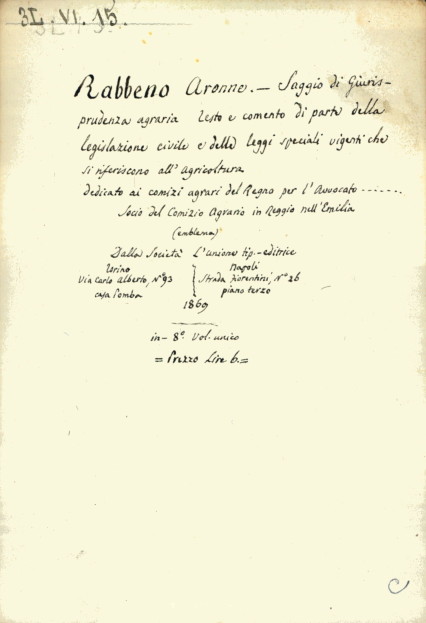 3L.VI.15.
Rabbeno Aronne. — Saggio di Giuris-
prudenza agraria Testo e comento di parte della
legislazione civile e delle leggi speciali vigenti che
si riferiscono all'Agricoltura
Dedicato ai comizi agrari del Regno per l'Avvocato -------
Socio del Comizio Agrario in Reggio nell'Emilia
(emblema)
Dalla Società L'unione tip.-editrice
Torino
Via Carlo Alberto, N° 93
casa Pomba
Napoli
Strada Fiorentini, N° 26
piano terzo
1869
in- 8°. Vol. unico
= Prezzo Lire 6.=